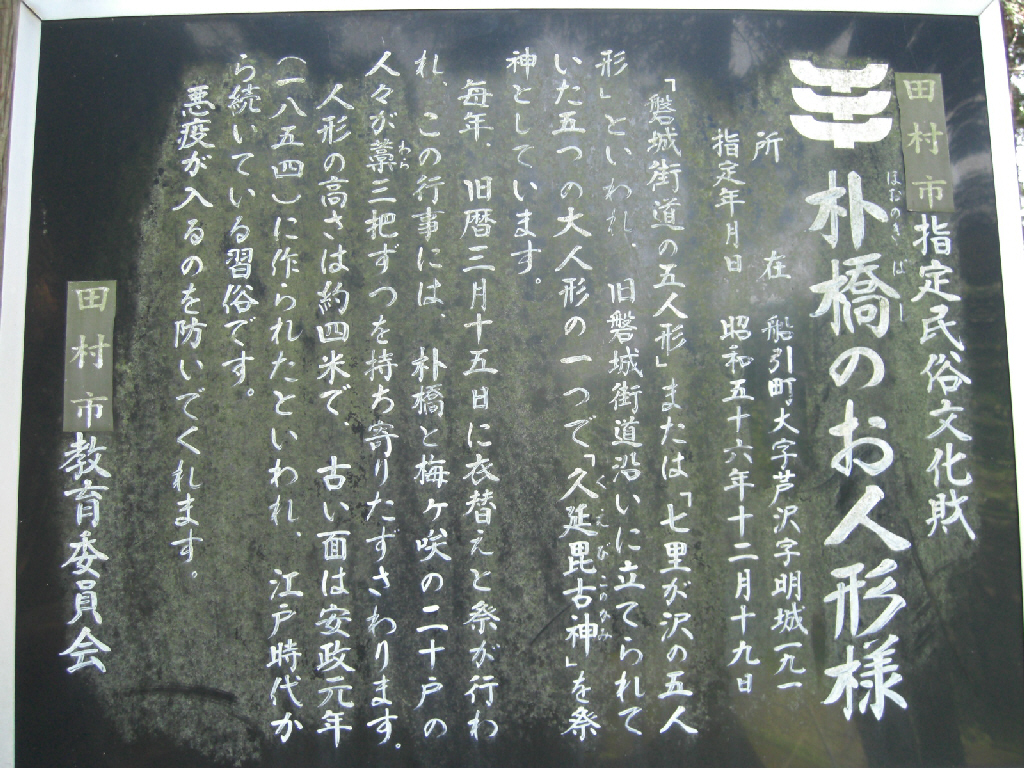 田村市指定民俗文化財
朴橋のお人形様
ほおのきばし
所在 船引町大字芦沢字明城一九一
指定年月日 昭和五十六年十二月十九日
「磐城街道の五人形」または「七里が沢の五人
形」といわれ、旧磐城街道沿いに立てられて
いた五つの大人形の一つで「久延毘古神」を祭
神としています。
毎年、旧暦三月十五日に衣替えと祭が行わ
れ、この行事には、朴橋と梅ヶ咲の二十戸の
人々が藁三把ずつを持ち寄りたずさわります。
わら
人形の高さは約四米で、古い面は安政元年
(一八五四)に作られたといわれ、江戸時代か
ら続いている習俗です。
悪疫が入るのを防いでくれます。
田村市教育委員会